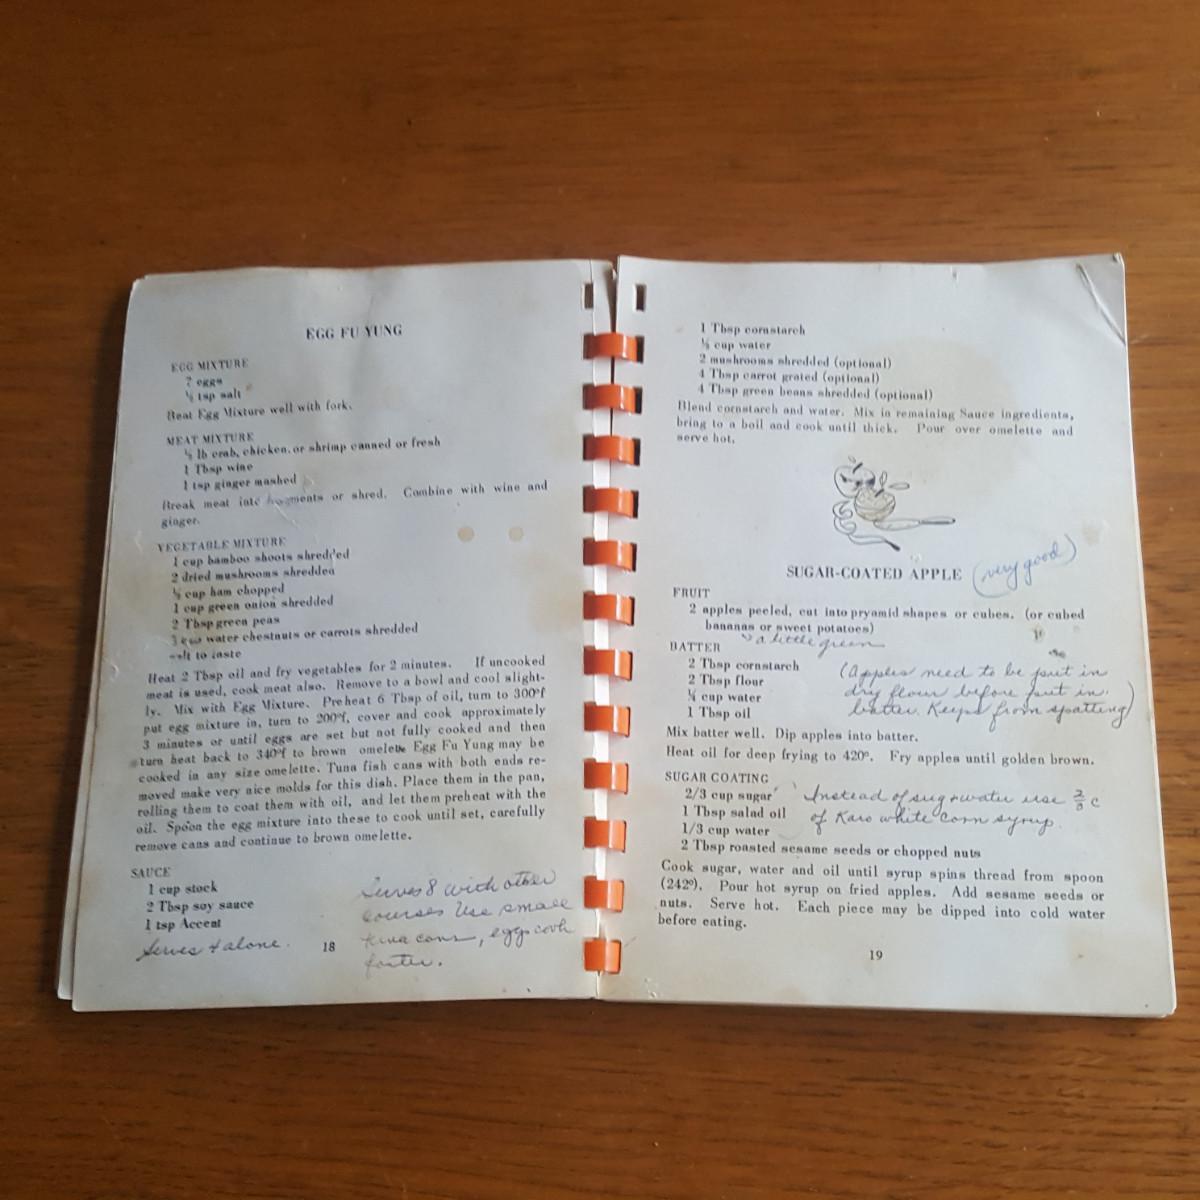 EGG FU YUNG
EGG MIXTURE
7 eggs
½ tsp salt
Beat Egg Mixture well with fork.
MEAT MIXTURE
½ lb crab, chicken, or shrimp canned or fresh
1 Tbsp wine
1 tsp ginger mashed
Break meat into fragments or shred. Combine with wine and
ginger.
VEGETABLE MIXTURE
1 cup bamboo shoots shredded
2 dried mushrooms shredded
½ cup ham chopped
1 cup green onion shredded
2 Tbsp green peas
water chestnuts or carrots shredded
salt to taste
Heat 2 Tbsp oil and fry vegetables for 2 minutes. If uncooked
meat is used, cook meat also. Remove to a bowl and cool slight-
ly. Mix with Egg Mixture. Preheat 6 Tbsp of oil, turn to 300°f
put egg mixture in, turn to 200°f, cover and cook approximately
3 minutes or until eggs are set but not fully cooked and then
turn heat back to 340°f to brown omelette Egg Fu Yung may be
cooked in any size omelette. Tuna fish cans with both ends re-
moved make very nice molds for this dish. Place them in the pan,
rolling them to coat them with oil, and let them preheat with the
oil. Spoon the egg mixture into these to cook until set, carefully
remove cans and continue to brown omelette.
SAUCE
1 cup stock
2 Tbsp soy sauce
1 tsp Accent
Serves 4 alone.
Serves 8 with other
courses Use small
tuna cans, eggs cook
faster.
18
1 Tbsp cornstarch
½ cup water
2 mushrooms shredded (optional)
4 Tbsp carrot grated (optional)
4 Tbsp green beans shredded (optional)
Blend cornstarch and water. Mix in remaining Sauce ingredients,
bring to a boil and cook until thick. Pour over omelette and
serve hot.
SUGAR-COATED APPLE (very good)
FRUIT
2 apples peeled, cut into pryamid shapes or cubes. (or cubed
bananas or sweet potatoes)
a little green
BATTER
2 Tbsp cornstarch
2 Tbsp flour
¼ cup water
1 Tbsp oil
(Apples need to be put in
dry flour before put in
batter. Keeps from spatting)
Mix batter well. Dip apples into batter.
Heat oil for deep frying to 420°. Fry apples until golden brown.
SUGAR COATING
2/3 cup sugar
1 Tbsp salad oil
1/3 cup water
2 Tbsp roasted sesame seeds or chopped nuts
Instead of sug + water use 2/3 c
of Karo white corn syrup.
Cook sugar, water and oil until syrup spins thread from spoon
(242°). Pour hot syrup on fried apples. Add sesame seeds or
nuts. Serve hot. Each piece may be dipped into cold water
before eating.
19